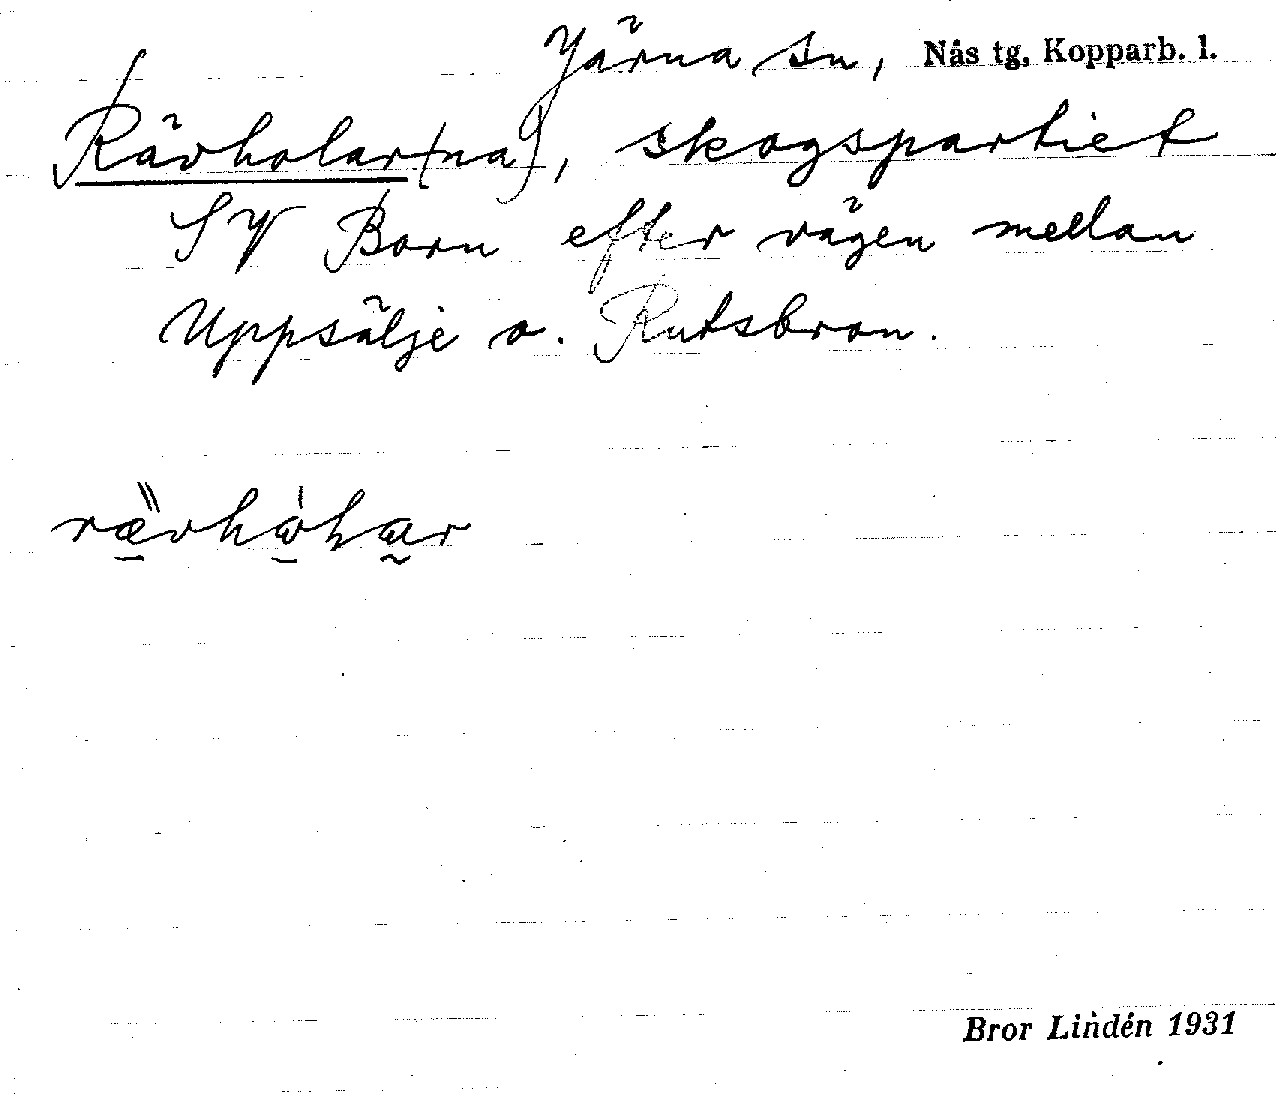 Järna sn, Nås tg, Kopparb. l.
Rävholar(na), skogspartiet
SV Born efter vägen mellan
Uppsälje o. Rutsbron.
Bror Lindén 1931